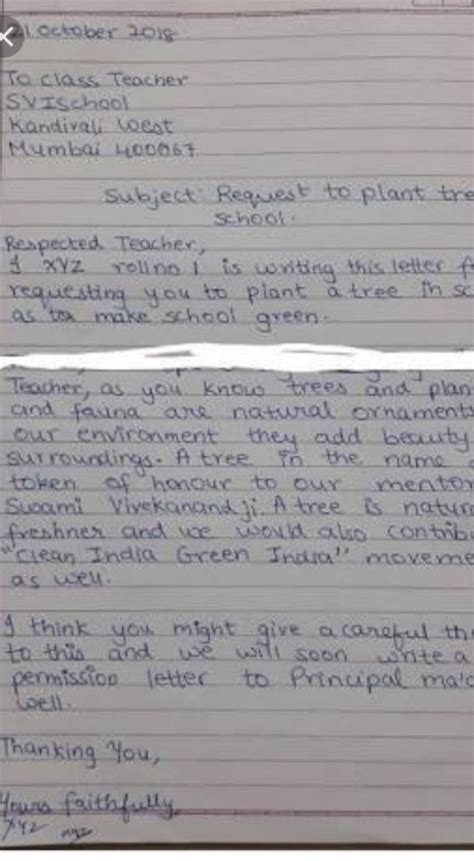 21 October 2018
To class Teacher
SVISchool
Kandivali West
Mumbai 400067
Subject: Request to plant tre
school.
Respected Teacher,
I XYZ rollno 1 is writing this letter f
requesting you to plant a tree in sc
as to make school green.
Teacher, as you know trees and plan
and fauna are natural ornament
our environment they add beauty
surroundings. A tree in the name
token of honour to our mentor
Swami Vivekanand ji. A tree is natur
freshner and we would also contrib
"clean India Green India" moveme
as well.
I think you might give a careful th
to this and we will soon write a
permission letter to Principal ma'a
well.
Thanking You,
Yours faithfully,
XYZ xyz